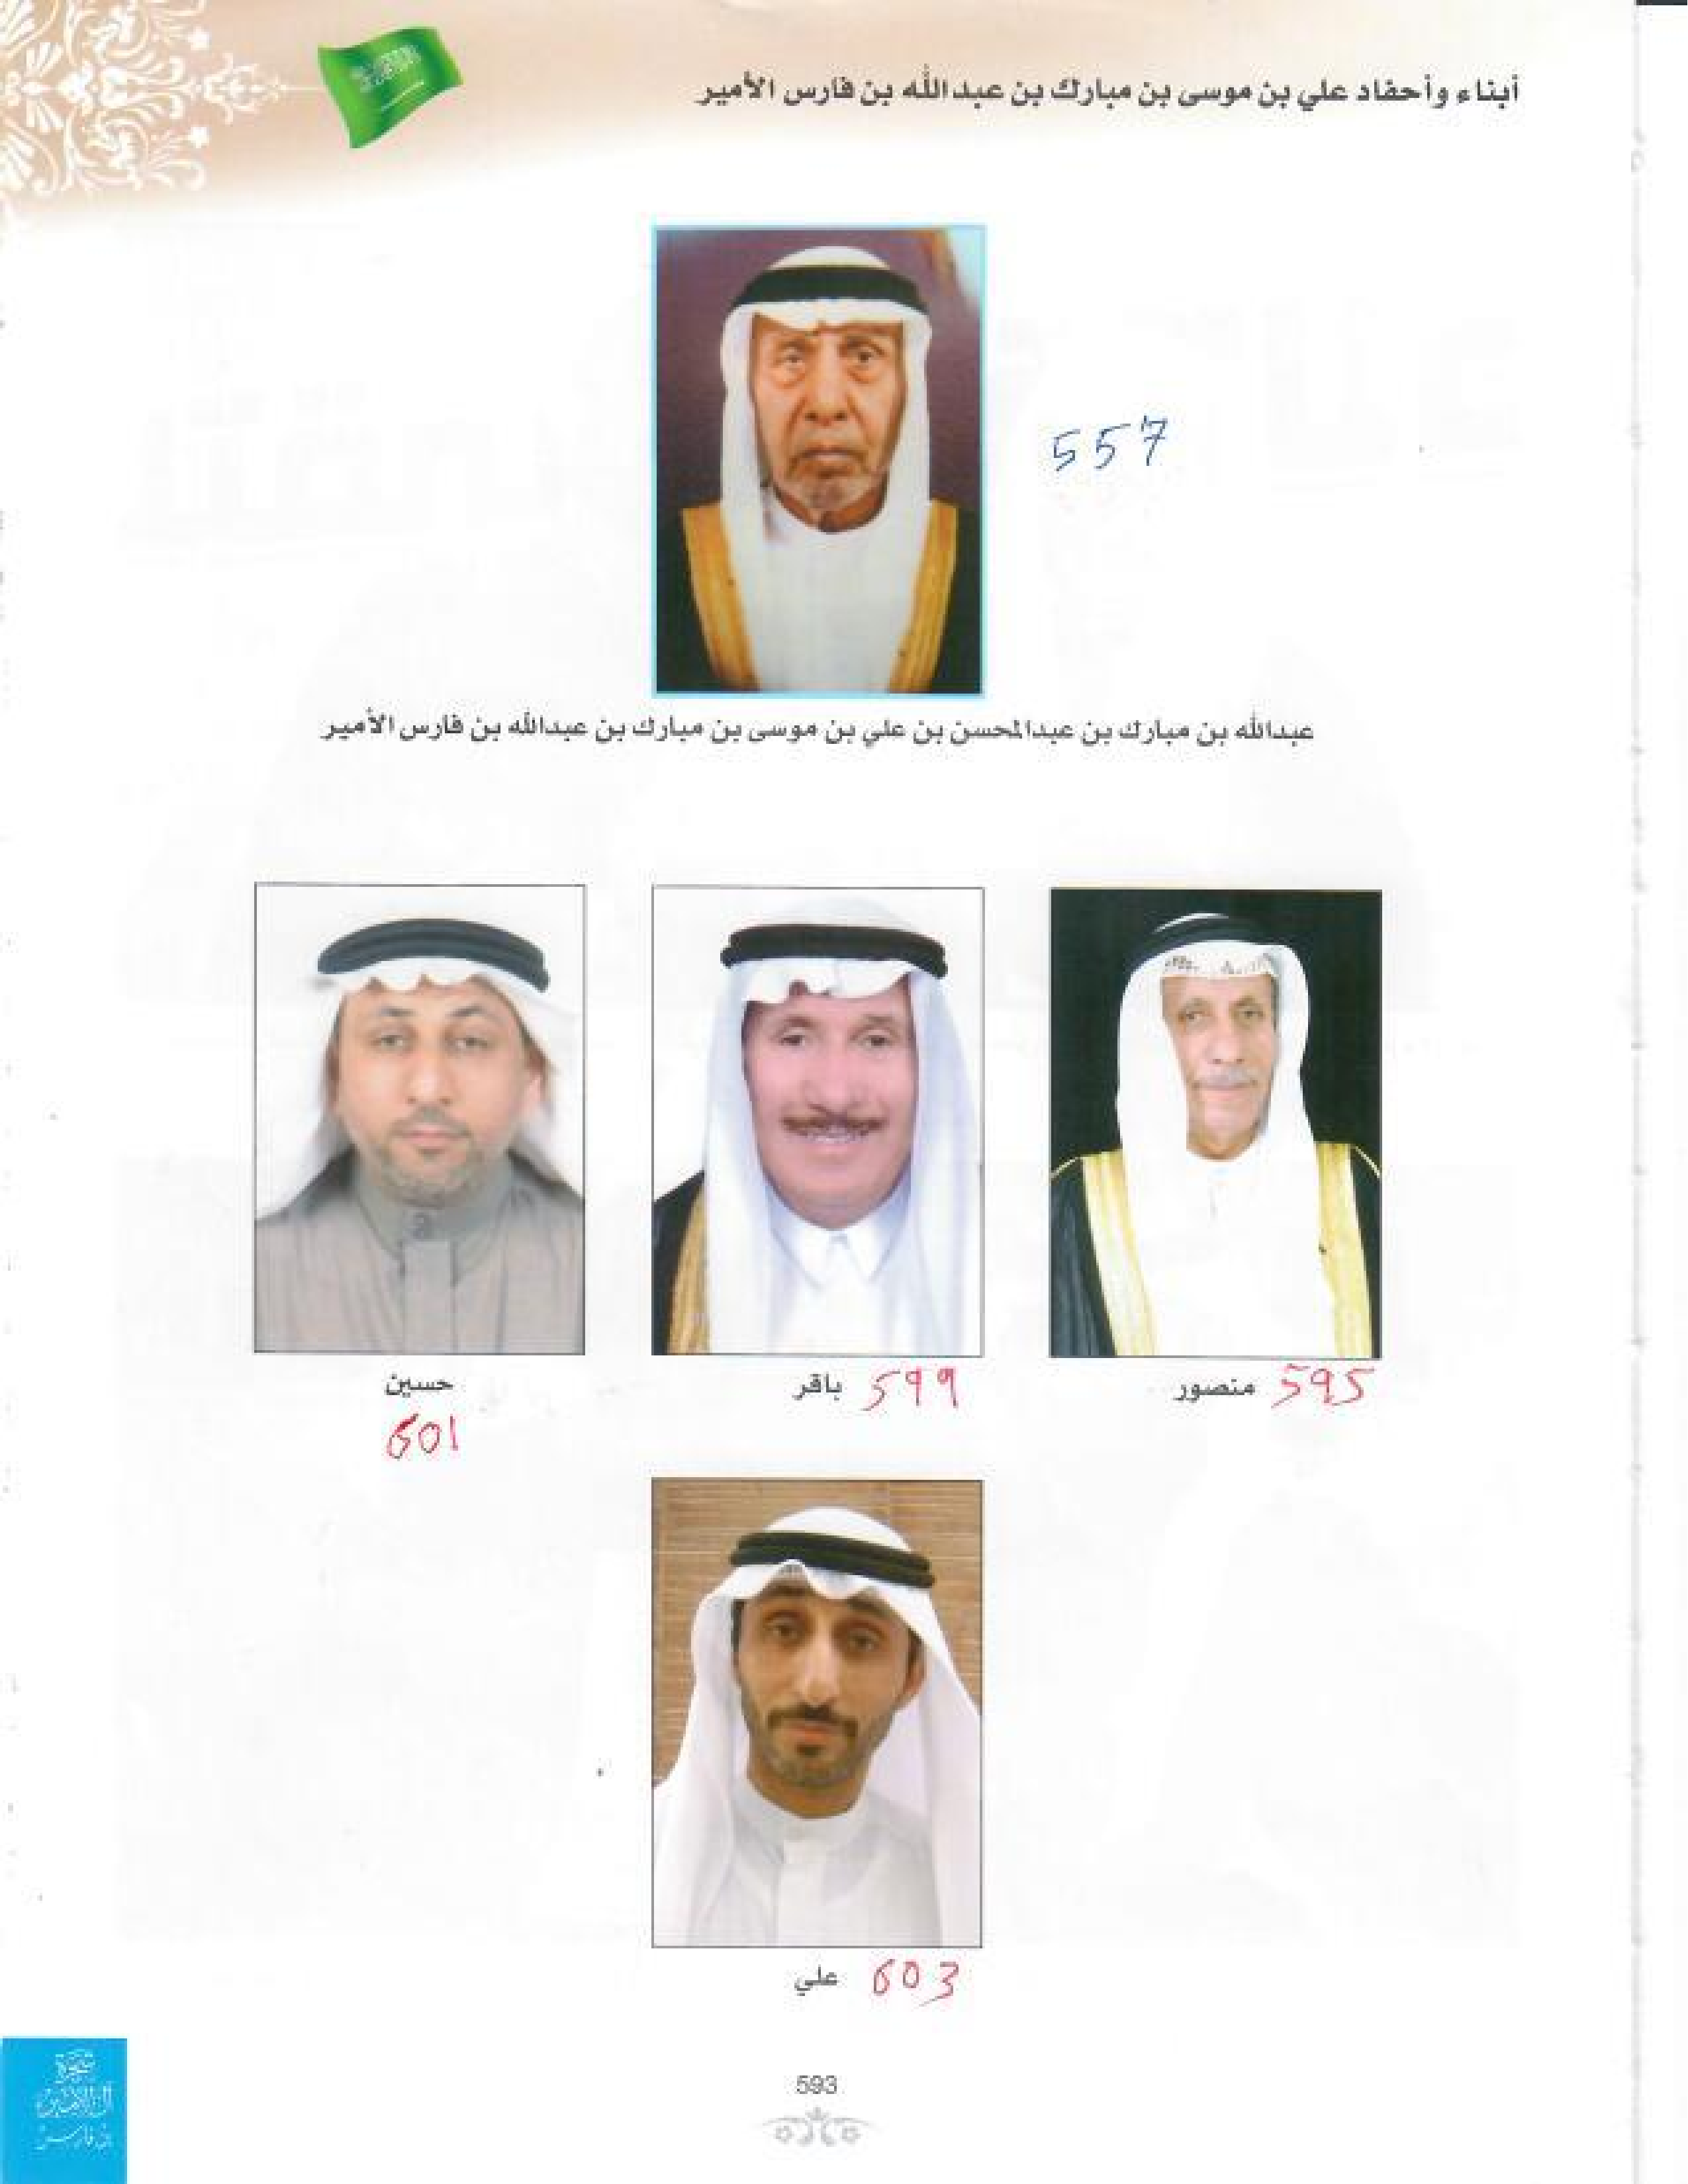 أبناء وأحفاد علي بن موسى بن مبارك بن عبدالله بن فارس الأمير
557
عبدالله بن مبارك بن عبدالمحسن بن علي بن موسى بن مبارك بن عبدالله بن فارس الأمير
منصور 595
باقر 599
حسين
601
علي 603
شجرة
آل الأمير
بن فارس
593